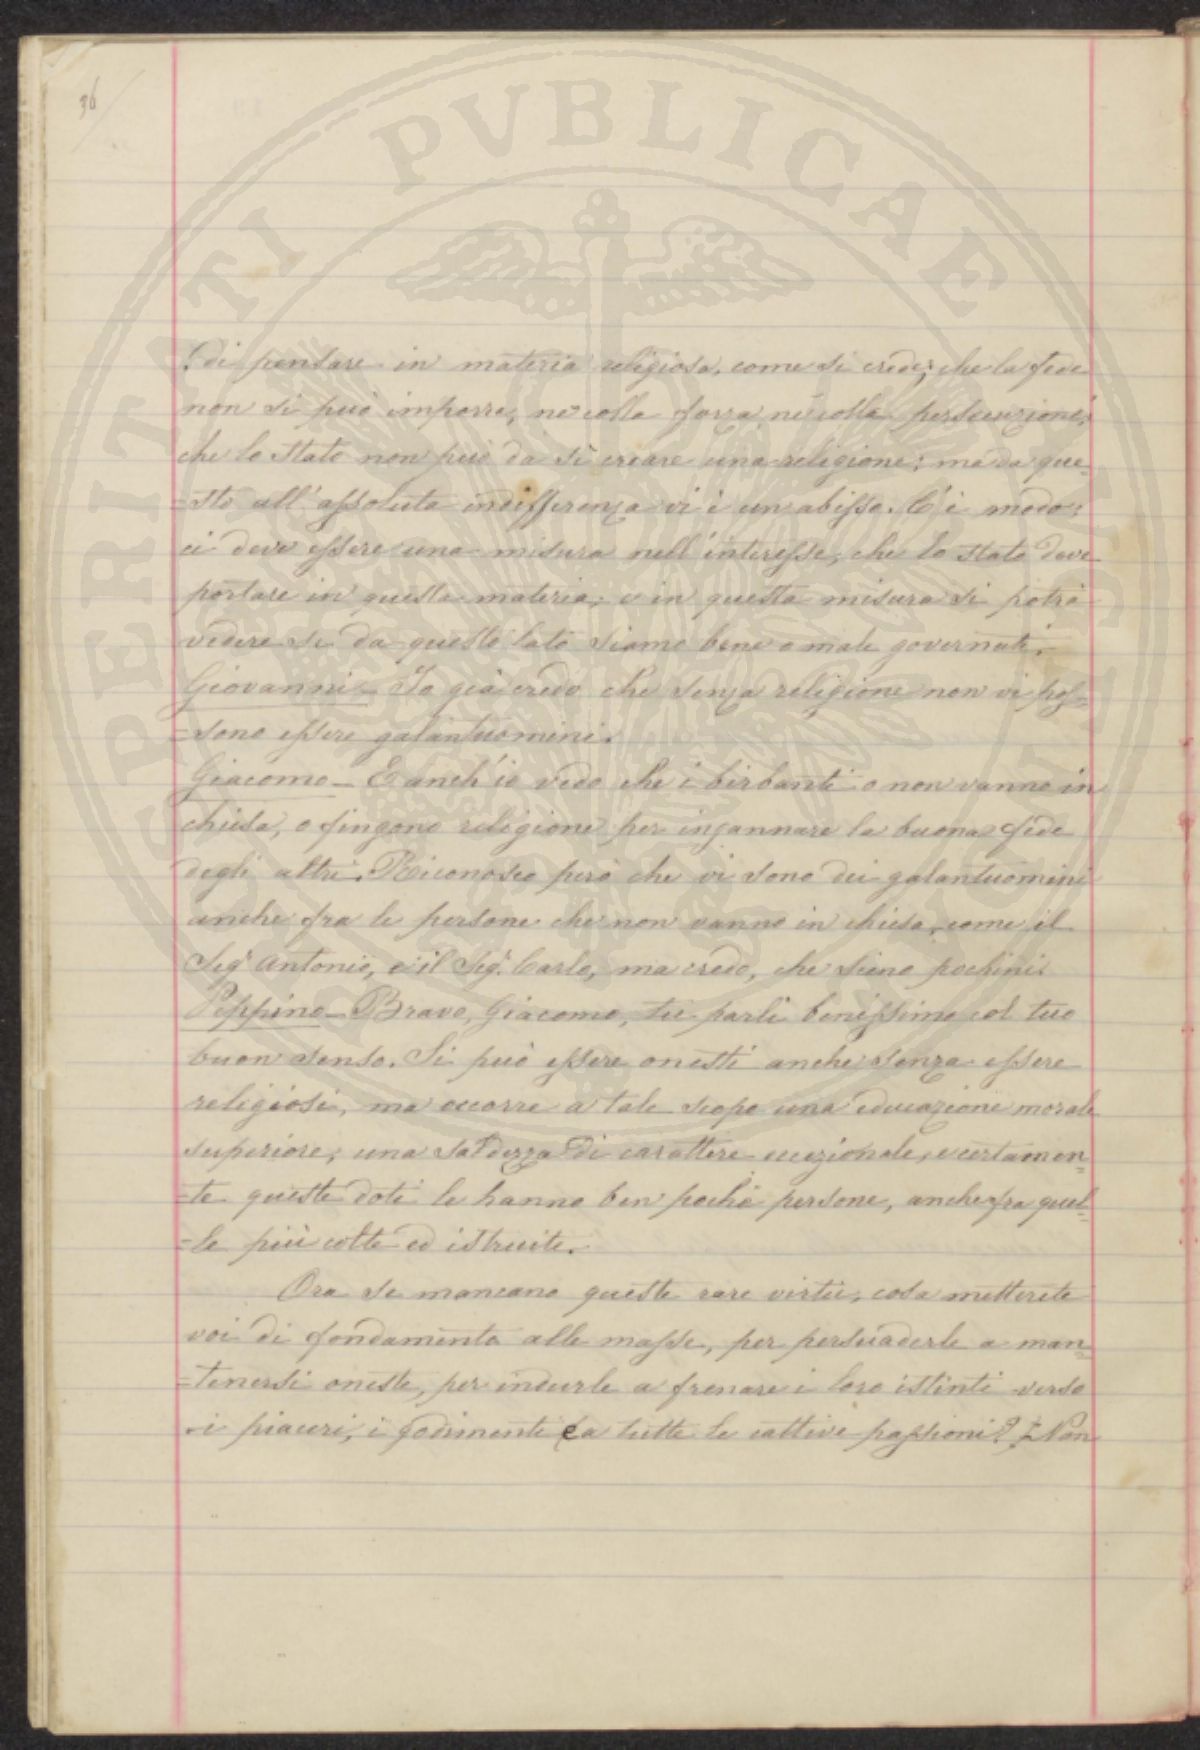 36
di pensare in materia religiosa, come si crede; che la fede
non si può imporre, nè colla forza nè colla persecuzione;
che lo Stato non può da sì creare una religione; ma da que-
-sto all'assoluta indifferenza vi è un abisso. C'è modo:
ci deve essere una misura nell'interesse, che lo stato deve
portare in questa materia, e in questa misura si potrà
vedere se da questo lato siamo bene o male governati.
Giovanni - Io già credo che senza religione non vi pos-
-sono essere galantuomini.
Giacomo - E anch'io vedo che i birbanti o non vanno in
chiesa, o fingono religione per ingannare la buona fede
degli altri. Riconosco però che vi sono dei galantuomini
anche fra le persone che non vanno in chiesa, come il
Sigr Antonio, e il Sigr. Carlo, ma credo, che sieno pochini.
Peppino - Bravo, Giacomo, tu parli benissimo col tuo
buon senso. Si può essere onesti anche senza essere
religiosi, ma occorre a tale scopo una educazione morale
superiore, una saldezza di carattere eccezionale, e certamen-
-te queste doti le hanno ben poche persone, anche fra quel-
-le più colte ed istruite.
Ora se mancano queste rare virtù, cosa metterete
voi di fondamento alle masse, per persuaderle a man-
-tenersi oneste, per indurle a frenare i loro istinti verso
i piaceri, i godimenti e a tutte le cattive passioni? Non
PERITATI PVBLICAE